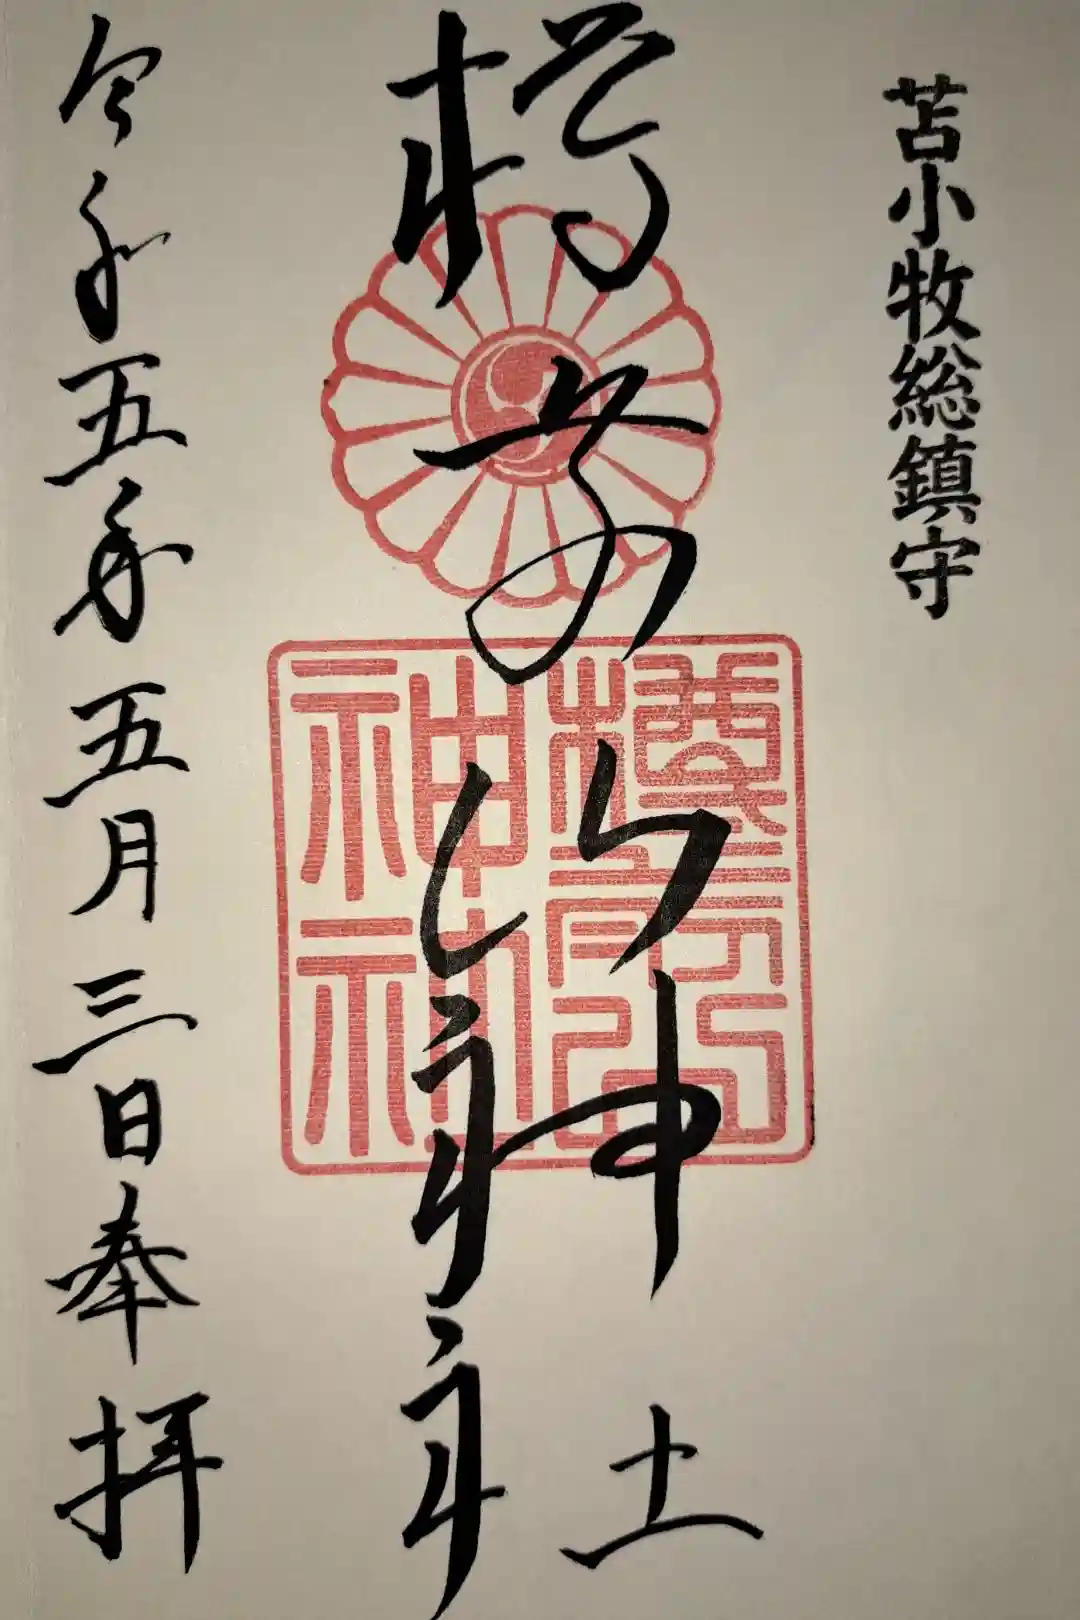 苫小牧総鎮守
樽前山神社
樽前山神社
令和五年五月三日奉拝